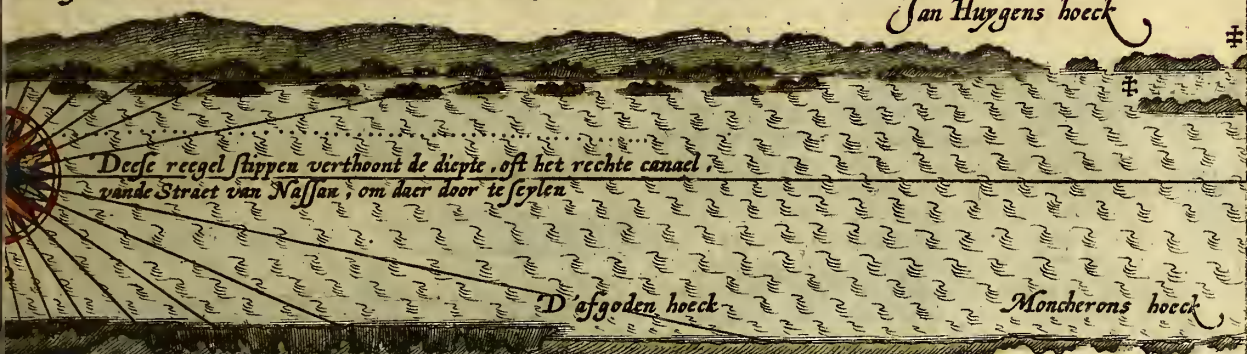 Jan Huygens hoeck
Deeſe reegel ſtippen verthoont de diepte, oft het rechte canael,
vande Straet van Naſſau, om daer door te ſeylen
D'afgoden hoeck
Moncherons hoeck